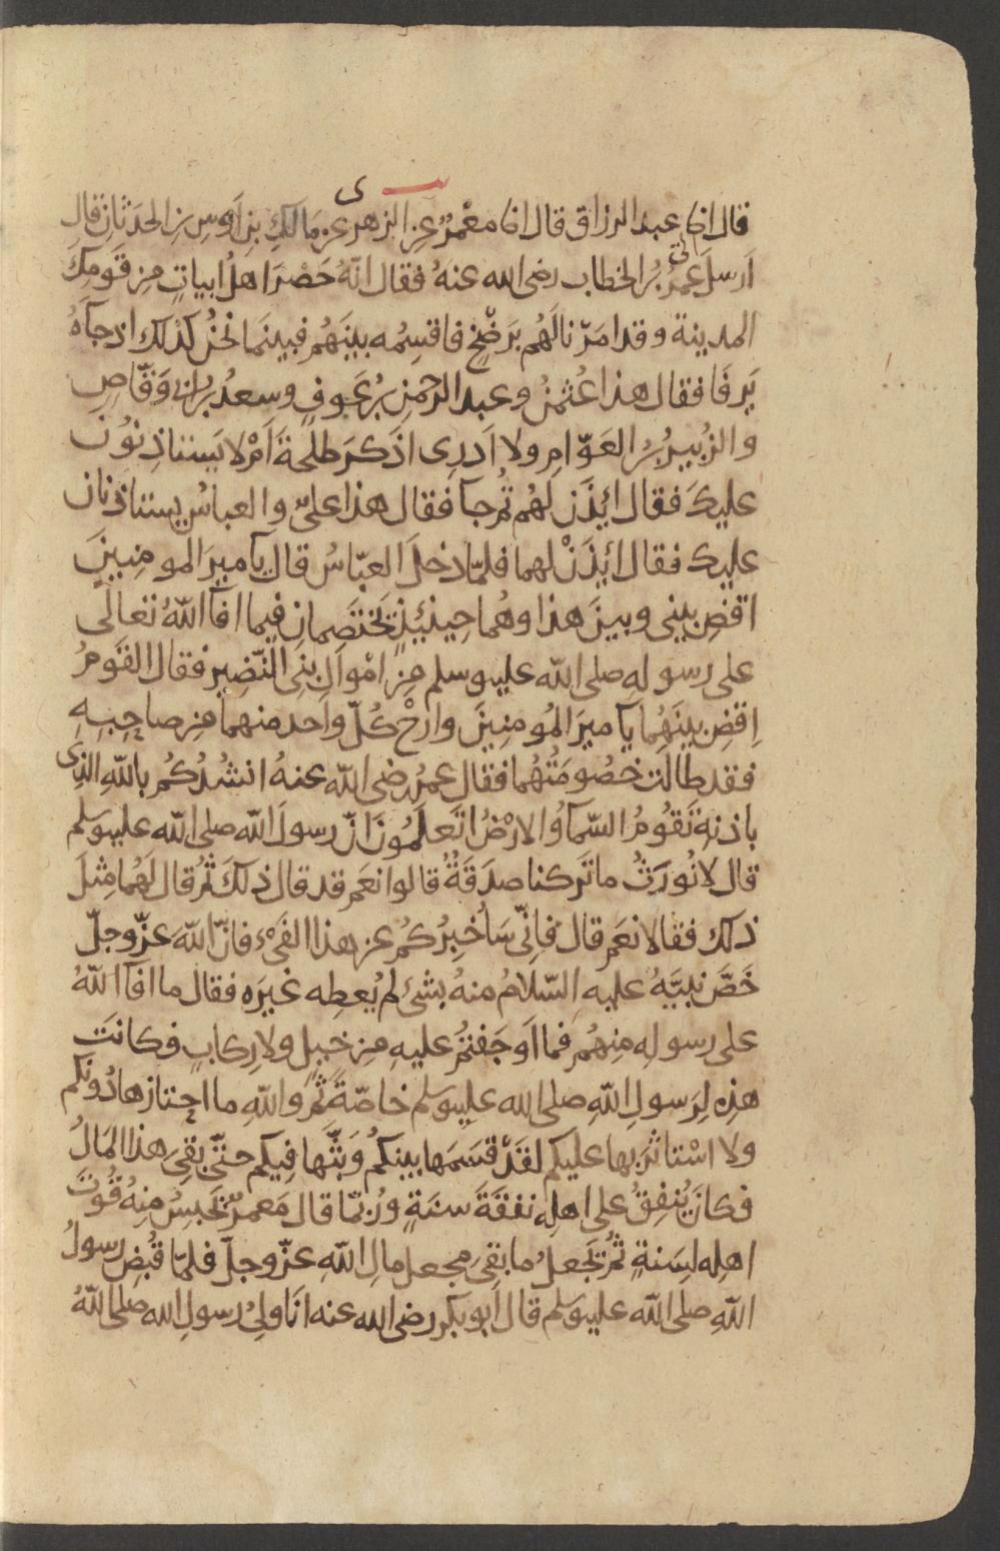 قال انا عبد الرزاق قال انا معْمَرٌ عن الزهرى عن مَالكِ بنِ اَوسِ بنِ الحدَثَانِ قال
اَرسلَ اِلىّ عمرُ بنُ الخطاب رضى الله عنهُ فقال انّهُ حَضرَ اهلُ ابياتٍ مِن قَومِكَ
المدينة وقد امَرنا لَهُم بَرَضْخٍ فاقسِمْه بينَهُم فبينَما نحنُ كذلك اذ جآءَهُ
يَرفَا فقال هذا عُثمٰنُ وعبد الرحمٰنِ بنُ عَوفٍ وسعدُ بنُ ابى وَقّاصٍ
والزُبيرُ بنُ العَوّامِ ولا اَدرِى اذَكرَ طلحَةَ اَمْ لا يَستاذِنُونَ
عليكَ فقال ائذَن لَهُم ثُم جآءَ فقال هذا علىٌّ والعباسُ يستاذنان
عليك فقال ائذَنْ لهما فلمّا دخلَ العبّاسُ قال يآ ميرَ المومِنِينَ
اقضِ بينى وبينَ هذا وهُما حِينئِذٍ يَختَصمانِ فيما افآءَ اللهُ تعالَى
على رسولِهِ صلى الله عليه وسلم مِن اَمْوالِ بنِى النّضِيرِ فقال القَومُ
اِقضِ بينَهُما يآ ميرَ المُومِنِينَ وارِحْ كُلّ واحد منهما مِن صاحِبِهِ
فقد طالَت خصُومَتُهُما فقال عمرُ رضى الله عنهُ انشُدُكُم باللهِ الذِى
باذنِهِ تَقُومُ السّمآءُ والارْضُ اتَعلَمُونَ انّ رسولَ الله صلى الله عليه وسلم
قال لا نُورَثُ ما تَركنا صدَقَةٌ قالوا نعَم قد قال ذلكَ ثُم قال لَهُما مِثلَ
ذلك فقالا نعَم قال فاِنّى سَاُخبِرُكُم عن هذا الفَىْءِ فانّ اللهَ عَزّ وجلّ
خَصَّ نبيَّهُ عليهِ السّلامُ منهُ بشىءٍ لم يُعطِه غيرَه فقال ما افآءَ اللهُ
على رسولِهِ مِنهُم فما اَوجَفتُم عليهِ مِن خيلٍ ولا رِكابٍ فكانَت
هذِه لِرَسولِ اللهِ صلى الله عليه وسلم خاصّةً ثُم واللهِ ما احتازها دُونكم
ولا اسْتاثَرَ بها عليكم لقَدْ قسَمَها بينكُم وبَثّها فِيكم حتّى بقِىَ هذا المَالُ
فكانَ يُنفِقُ على اهلِه نفقَةَ سنَةٍ ورُبّما قال مَعمرٌ يَحبِسُ مِنهُ قُوتَ
اهلِه لسَنةٍ ثُم يَجعلُ ما بقِىَ مجعل مالِ اللهِ عزّ وجلّ فلمّا قُبِضَ رسولُ
اللهِ صلى الله عليه وسلم قال ابو بكرٍ رضى الله عنه انَا ولِىُّ رسولِ الله صلى اللهُ